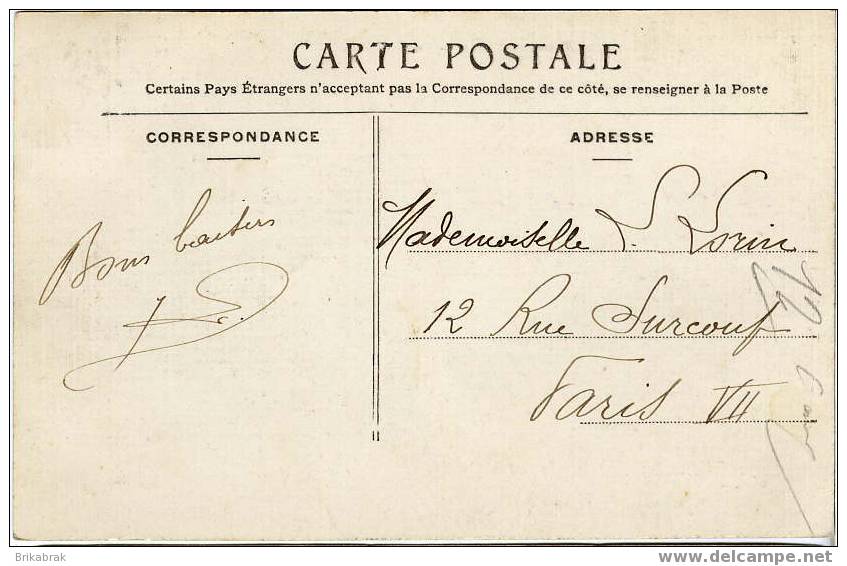 CARTE POSTALE
Certains Pays Étrangers n'acceptant pas la Correspondance de ce côté, se renseigner à la Poste
CORRESPONDANCE
Bons baisers
ADRESSE
Mademoiselle L. Lorin
12 Rue Surcouf
Paris VII
Brikabrak
www.delcampe.net